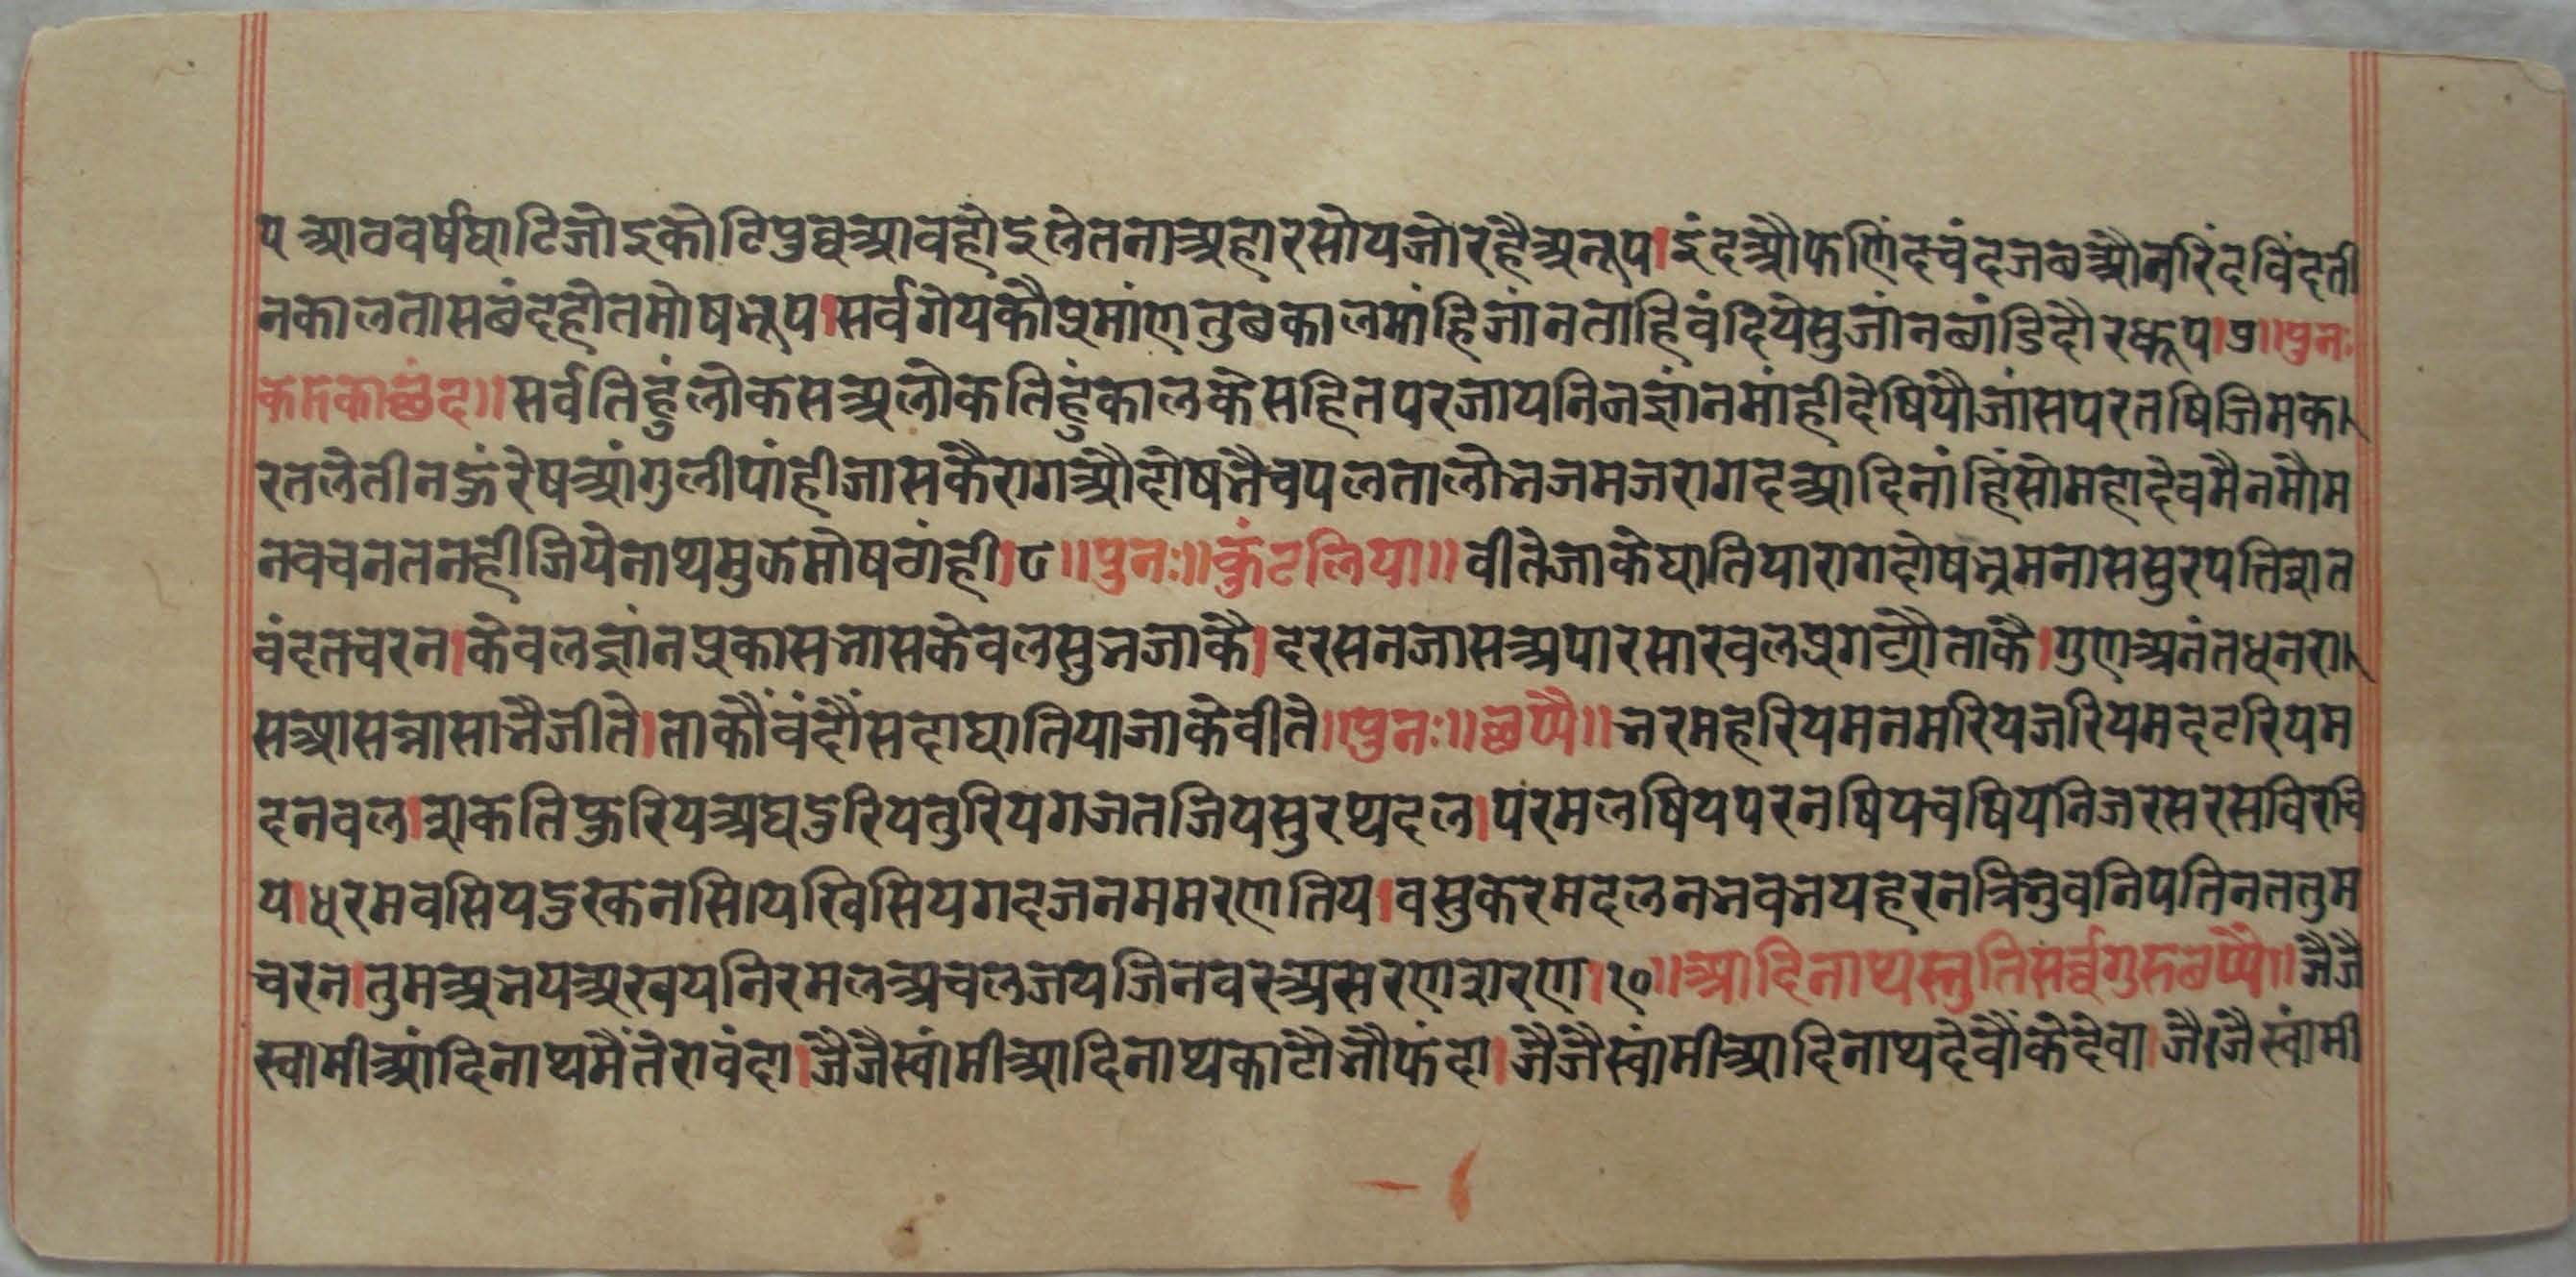 प आव वर्ष घाटि जोइ कोटि पुव्व आव होइ लेत ना अहार सोय जो रहै अनूप। इंद औ फणिंद चंद जब औ नरिंद विंद ती
न काल तास बंद होत मोष भूप। सर्व गेय कौ प्रमांण तुबं काल मांहि जांन ताहि वंदिये सुजांन बांडि दौर ध्रूप।७॥पुनः
करुका छंद॥सर्व तिहुं लोक स अलोक तिहुं काल के सहित परजाय निज ज्ञांन मांही देषियौ जांस परतषि जिम क।
रतले तीन ऊं रेष आंगुली पांही जास कै राग औ दोष भै चपलता लोभ जम जरा गद आदि नांहिं सो महादेव मै नमौ म
न वचन तन ही जिये नाथ मुझ मोष वांही।८॥पुनः॥कुंटलिया॥वीते जाके घातिया राग दोष भ्रम नास सुरपत्ति शत
वंदत चरन।केवल ज्ञांन प्रकास भास केवल सुभ जाकै।दरसन जास अपार सार वल प्रगट्यौ ताकै।गुण अनंत धुन रा।
स आस त्रासा भै जीते।ताकौं वंदौं सदा घातिया जाके वीते॥पुनः॥छप्पै॥भरम हरिय मन मरिय जरिय मद टरिय म
दन वल।शकति फुरिय अघ डुरिय तुरिय गज तजिय सुरथ्थ दल।परम लषिय पर नषिय चषिय निज रस रस विरचि
य।धरम वसिय डुरक नसिय खिसिय गद जनम मरण तिय।वसु करम दलन भव भय हरन त्रिभुवनिपति नत तुम
चरन।तुम अभय अखय निरमल अचल जय जिनवर असरण शरण।१०॥आदिनाथ स्तुति सर्व्व गुरु छप्पै॥जै जै
स्वामी आंदिनाथ मैं तेरा वंदा।जै जै स्वांमी आदिनाथ काटौ भौ फंदा।जै जै स्वांमी आदिनाथ देवौं के देवा।जै जै स्वांमी